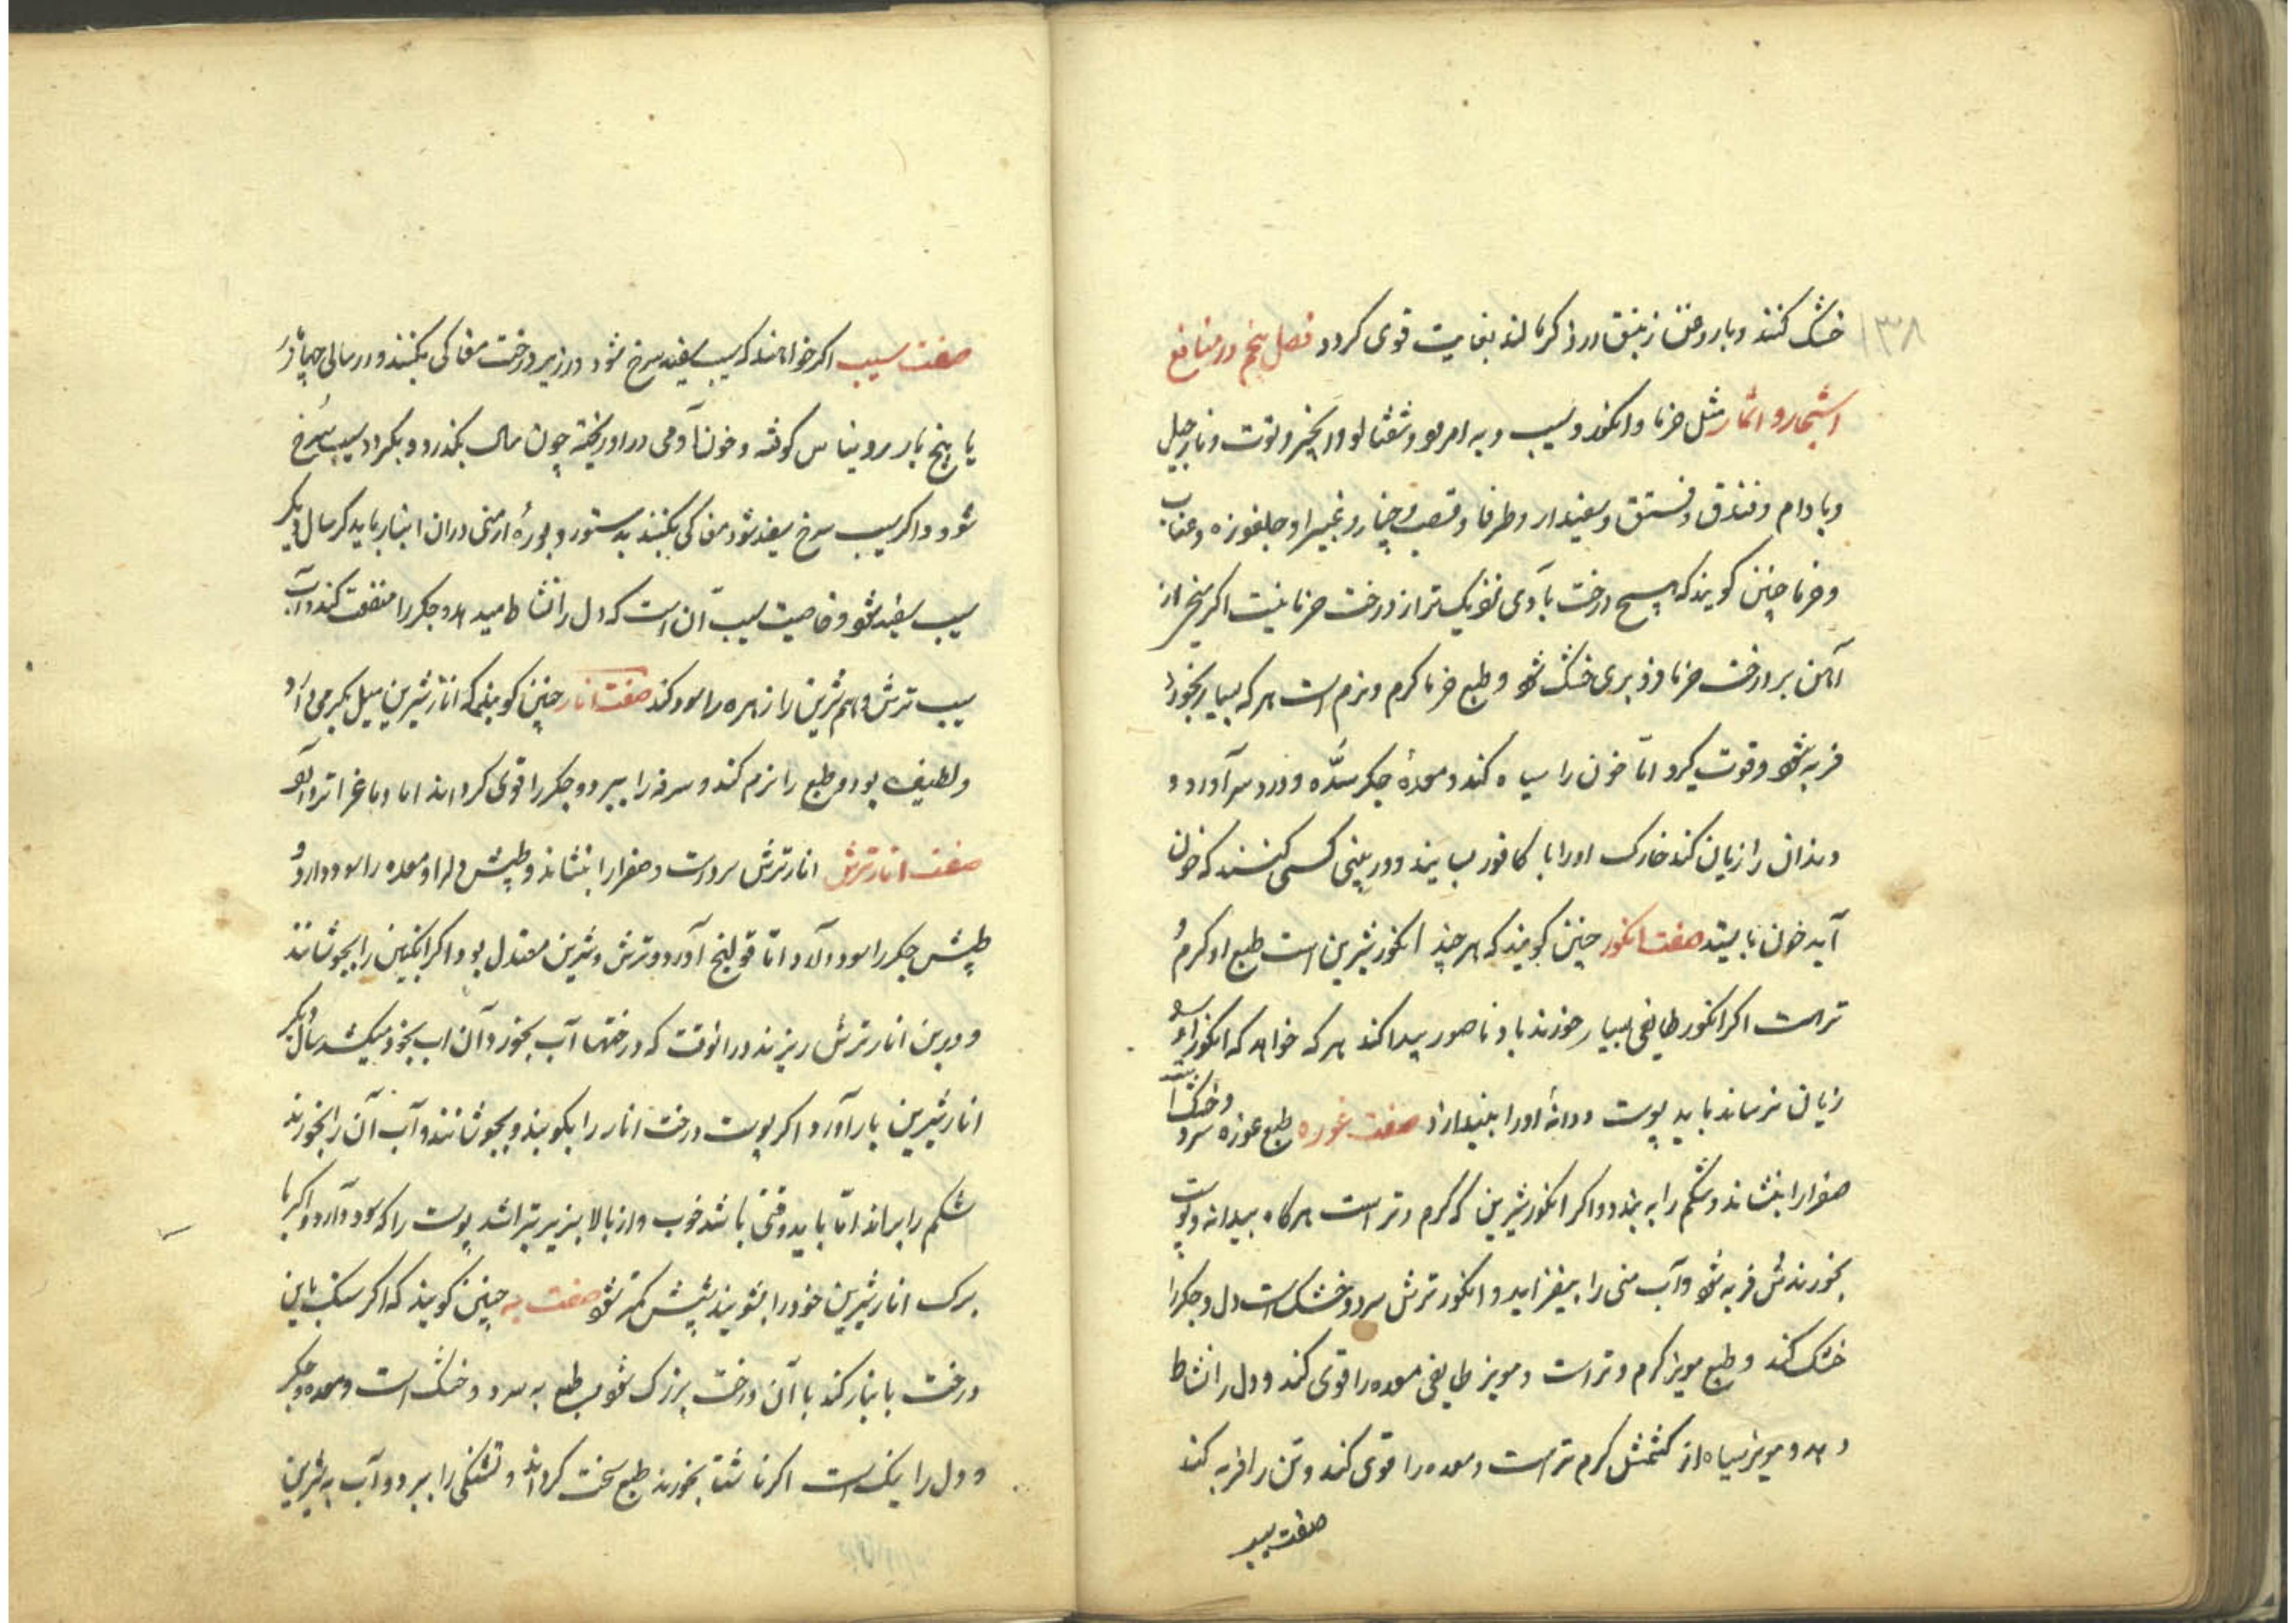 ۱۳۸
خشک کنند و با روغن زنبق در ذکر مالند بغایت قوی کردد فصل پنجم در منافع
اشجار و اثمار مثل خرما و انکور و سیب و به و امرود و شفتالو و انجیر و توت و نارجیل
و بادام و فندق و فستق و سفیدار و طرفا و قصب و چنار و غبیرا و جلغوزه و عناب
و خرما چنین کویند که هیچ درخت بآدمی نزدیک‌تر از درخت خرما نیست اکر میخ از
آهن بر درخت خرما فرو بری خشک شود و طبع خرما کرم و نرم است هر که بسیار بخورد
فربه شود و قوت کیرد امّا خون را سیاه کند و معدهٔ جکر سُدّه و درد سر آورد و
دندان را زیان کند خارک او را با کافور بسایند و در بینی کسی کنند که خون
آید خون بایستد صفت انکور چنین کویند که هر چند انکور شیرین است طبع او کرم و
تر است اکر انکور طایفی بسیار خورند باد ناصور پیدا کند هر که خواهد که انکور او را
زیان نرساند باید پوست و دانهٔ او را بیندازد صفت غوره طبع غوره سرد و خشک است
صفرا را بنشاند و شکم را به بندد و اکر انکور شیرین که کرم و تر است هر کاه بیدانه و پوست
بخورند تن فربه شود و آب منی را بیفزاید و انکور ترش سرد و خشک است دل و جکر را
خشک کند و طبع مویز کرم و تر است و مویز طایفی معده را قوی کند و دل را نشاط
دهد و مویز سیاه از کشمش کرم تر است و معده را قوی کند و تن را فربه کند
صفت سیب
صفت سیب اکر خواهند که سیب سفید سرخ شود در زیر درخت مغاکی بکنند و در سالی چهار بار
یا پنج بار روناس کوفته و خون آدمی در او ریخته چون سال بکذرد و بکردد سیب سُرخ
شود و اکر سیب سرخ سفید شود مغاکی بکنند بدستور و بورهٔ ارمنی در ان انبار باید کرد سال دیکر
سیب سفید شود و خاصیت سیب آن است که دل را نشاط میدهد و جکر را منفعت کند و آب
سیب ترش و هم شیرین را زهره را سود کند صفت انار چنین کویند که انار شیرین میل بکرمی دارد
و لطیف بود و طبع را نرم کند و سرفه را ببرد و جکر را قوی کرداند اما دماغ را تر
صفت انار ترش انار ترش سرد است و صفرا را بنشاند و طپش دل را و معده را سود دارد و
طپش جکر را سود دارد و امّا قولنج آورد و ترش و شیرین معتدل بود اکر انکبین را بجوشانند
و در بن انار ترش ریزند در انوقت که درختها آب بخورد آن اب بخود میکشد سال دیکر
انار شیرین بار آورد و اکر پوست درخت انار را بکوبند و بجوشانند و آب آن را بخورند
شکم را براند امّا باید وقتی باشد خوب و از بالا بزیر بتراشد پوست را که سود دارد و اکر با
برک انار شیرین خود را بشویند شپش کم شود صفت به چنین کویند که اکر سنک باین
درخت بانبار کند با آن درخت بزرک شود طبع به سرد و خشک است و معده و جکر
و دل را نیک است اکر ناشتا بخورند طبع سخت کرداند و تشنکی را ببرد و آب به شیرین